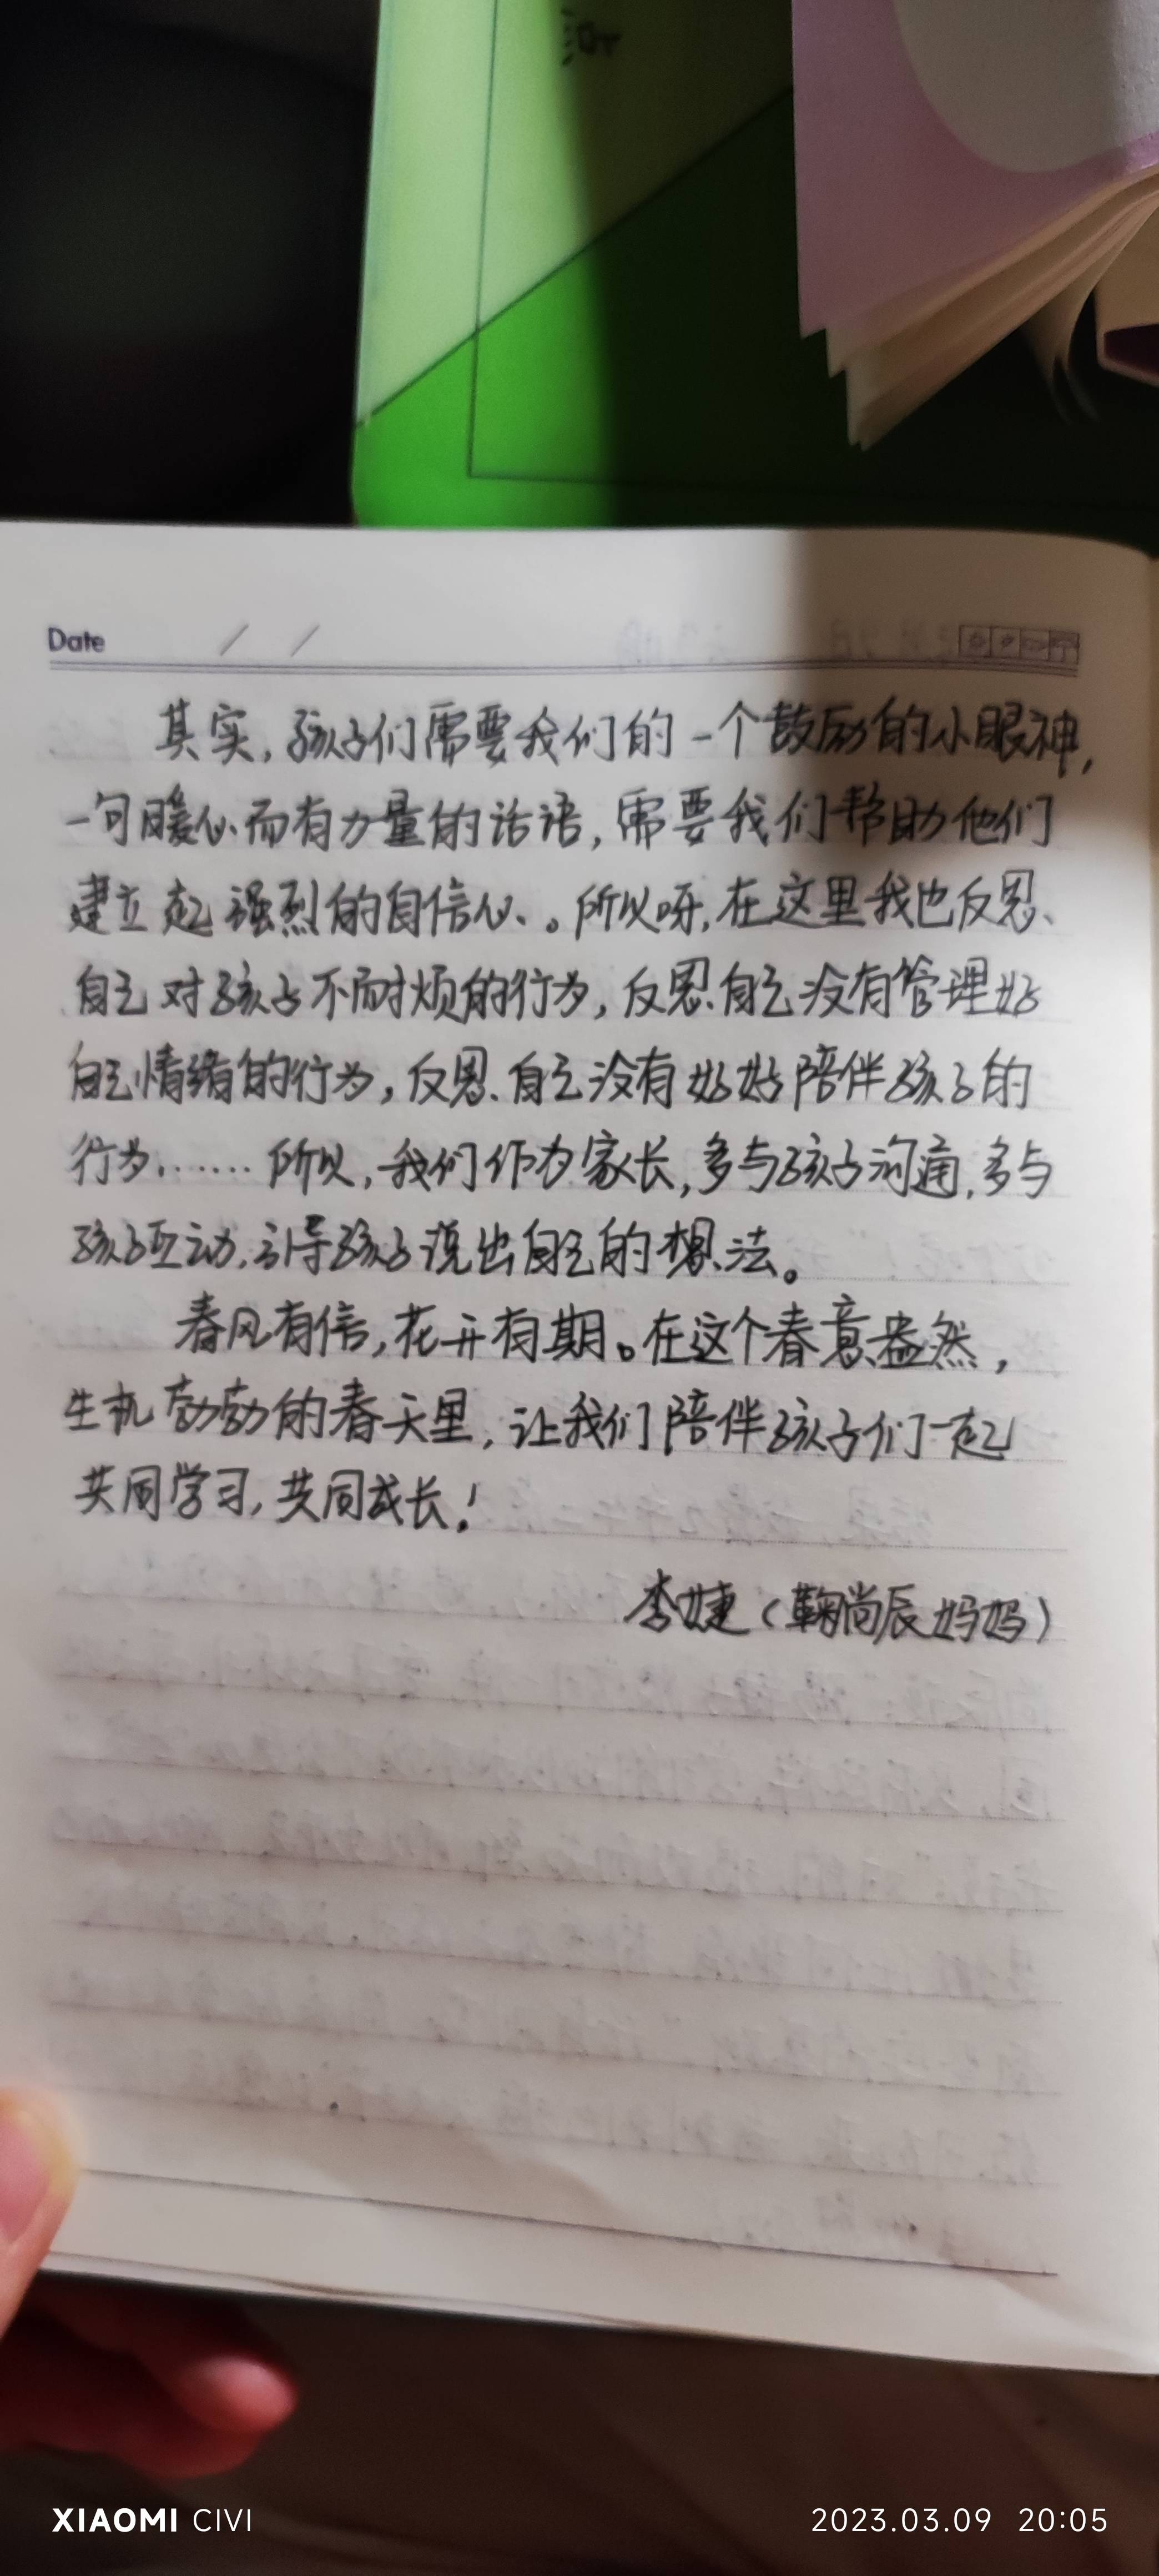 Date / /
其实,孩子们需要我们的一个鼓励的小眼神,
一句暖心而有力量的话语,需要我们帮助他们
建立起强烈的自信心。所以呀,在这里我也反思
自己对孩子不耐烦的行为,反思自己没有管理好
自己情绪的行为,反思自己没有好好陪伴孩子的
行为……所以,我们作为家长,多与孩子沟通,多与
孩子互动,引导孩子说出自己的想法。
春风有信,花开有期。在这个春意盎然,
生机勃勃的春天里,让我们陪伴孩子们一起
共同学习,共同成长!
李婕(鞠尚辰妈妈)
XIAOMI CIVI
2023.03.09 20:05